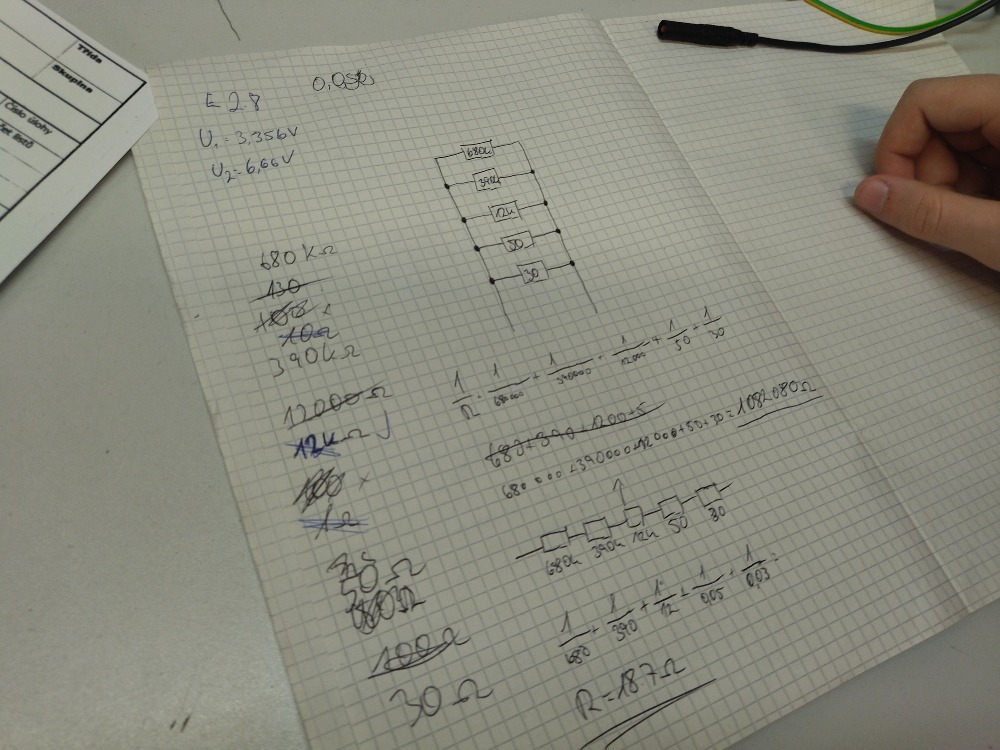 Třída
Skupina
Číslo úlohy
0,05k
E 2.8
U₁ = 3,356V
U₂ = 6,66V
680k
390k
12k
50
30
680 kΩ
130
10Ω
390kΩ
12000Ω
12kΩ
1Ω
100Ω
30Ω
1/Ω = 1/680000 + 1/390000 + 1/12000 + 1/50 + 1/30
680+390+1200+5
680 000 + 390000 + 12000 + 50 + 30 = 1082080Ω
680k 390k 12k 50 30
1/680 + 1/390 + 1/12 + 1/0,05 + 1/0,03 =
R = 187Ω